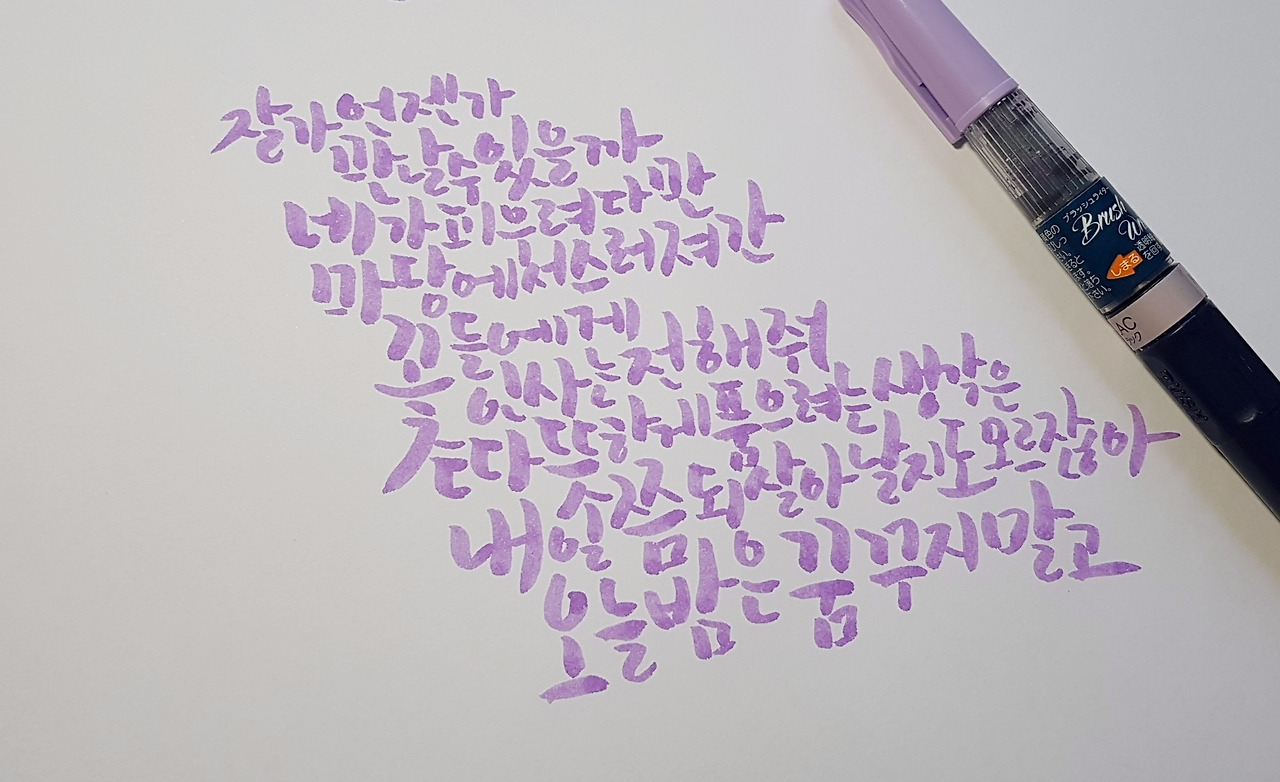 잘가 언젠가
만날 수 있을까
네가 피으려다 만
마당에서 스러져간
꽃들에게
인사는 전해줘
뜻하게 품으려는 생각은
내일쯤 되살아날지도 모르잖아
오늘 밤은 꿈꾸지 말고
ブラッシュライター
Brush
しまる
AC